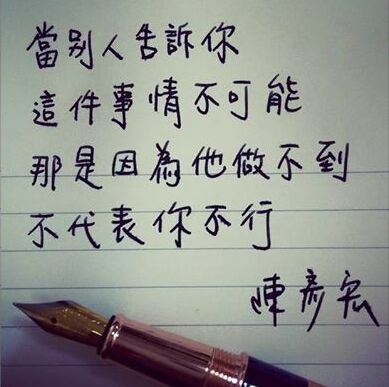 當別人告訴你
這件事情不可能
那是因為他做不到
不代表你不行
陳彥宏